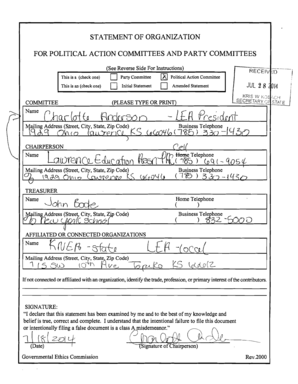 STATEMENT OF ORGANIZATION
FOR POLITICAL ACTION COMMITTEES AND PARTY COMMITTEES
(See Reverse Side For Instructions)
This is a (check one) Party Committee X Political Action Committee
This is an (check one) Initial Statement Amended Statement
RECEIVED
JUL 18 2014
SECRETARY OF STATE
COMMITTEE (PLEASE TYPE OR PRINT)
Name Charlotte Anderson - LEA President
Mailing Address (Street, City, State, Zip Code) Business Telephone
1929 Ohio Lawrence, KS 66046 (785) 330-1430
CHAIRPERSON Cell
Name Home Telephone
Lawrence Education Assn (785) 691-9054
Mailing Address (Street, City, State, Zip Code) Business Telephone
1929 Ohio Lawrence KS 66046 (785) 330-1430
TREASURER
Name John Bode Home Telephone
( )
Mailing Address (Street, City, State, Zip Code) Business Telephone
New York School ( ) 832-5000
AFFILIATED OR CONNECTED ORGANIZATIONS
Name KNEA - State LEA - local
Mailing Address (Street, City, State, Zip Code)
715 SW 10th Ave Topeka KS 66612
If not connected or affiliated with an organization, identify the trade, profession, or primary interest of the contributors.
SIGNATURE:
"I declare that this statement has been examined by me and to the best of my knowledge and
belief is true, correct and complete. I understand that the intentional failure to file this document
or intentionally filing a false document is a class A misdemeanor."
7/18/2014
(Date) (Signature of Chairperson)
Governmental Ethics Commission Rev.2000